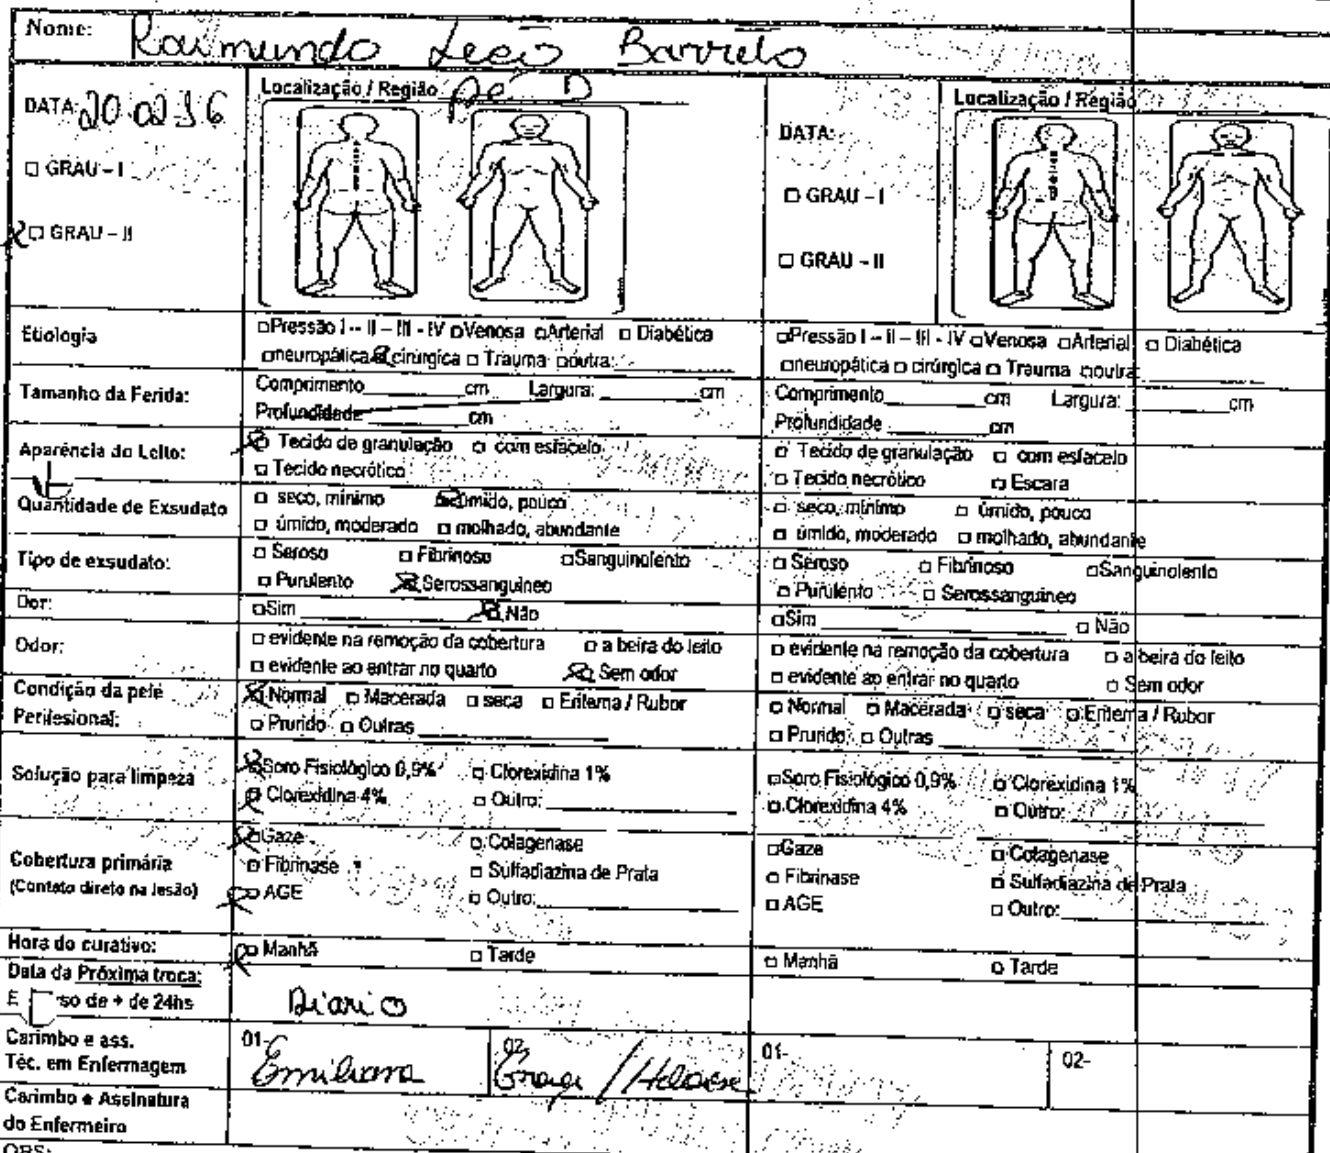 Nome: Raimundo Leão Barreto
DATA: 20.02.16
Localização / Região pé D
□ GRAU – I
□ GRAU – II
DATA:
Localização / Região
□ GRAU – I
□ GRAU – II
Etiologia
□Pressão I – II – III - IV □Venosa □Arterial □ Diabética
□neuropática □ cirúrgica □ Trauma □outra:
□Pressão I – II – III - IV □Venosa □Arterial □ Diabética
□neuropática □ cirúrgica □ Trauma □outra:
Tamanho da Ferida:
Comprimento________cm Largura: ________cm
Profundidade ________cm
Comprimento________cm Largura: ________cm
Profundidade ________cm
Aparência do Leito:
□ Tecido de granulação □ com esfacelo
□ Tecido necrótico
□ Tecido de granulação □ com esfacelo
□ Tecido necrótico □ Escara
Quantidade de Exsudato
□ seco, mínimo □ úmido, pouco
□ úmido, moderado □ molhado, abundante
□ seco, mínimo □ úmido, pouco
□ úmido, moderado □ molhado, abundante
Tipo de exsudato:
□ Seroso □ Fibrinoso □Sanguinolento
□ Purulento □ Serossanguíneo
□ Seroso □ Fibrinoso □Sanguinolento
□ Purulento □ Serossanguíneo
Dor:
□Sim ________ □ Não
□Sim ________ □ Não
Odor:
□ evidente na remoção da cobertura □ a beira do leito
□ evidente ao entrar no quarto □ Sem odor
□ evidente na remoção da cobertura □ a beira do leito
□ evidente ao entrar no quarto □ Sem odor
Condição da pele
Perilesional:
□ Normal □ Macerada □ seca □ Eritema / Rubor
□ Prurido □ Outras ________
□ Normal □ Macerada □ seca □ Eritema / Rubor
□ Prurido □ Outras ________
Solução para limpeza
□Soro Fisiológico 0,9% □ Clorexidina 1%
□ Clorexidina 4% □ Outro: ________
□Soro Fisiológico 0,9% □ Clorexidina 1%
□ Clorexidina 4% □ Outro: ________
Cobertura primária
(Contato direto na lesão)
□Gaze □ Colagenase
□ Fibrinase □ Sulfadiazina de Prata
□ AGE □ Outro: ________
□Gaze □ Colagenase
□ Fibrinase □ Sulfadiazina de Prata
□ AGE □ Outro: ________
Hora do curativo:
□ Manhã □ Tarde
□ Manhã □ Tarde
Data da Próxima troca:
so de + de 24hs
Diario
Carimbo e ass.
Téc. em Enfermagem
01- Emiliana
02-
01-
02-
Carimbo e Assinatura
do Enfermeiro
OBS: